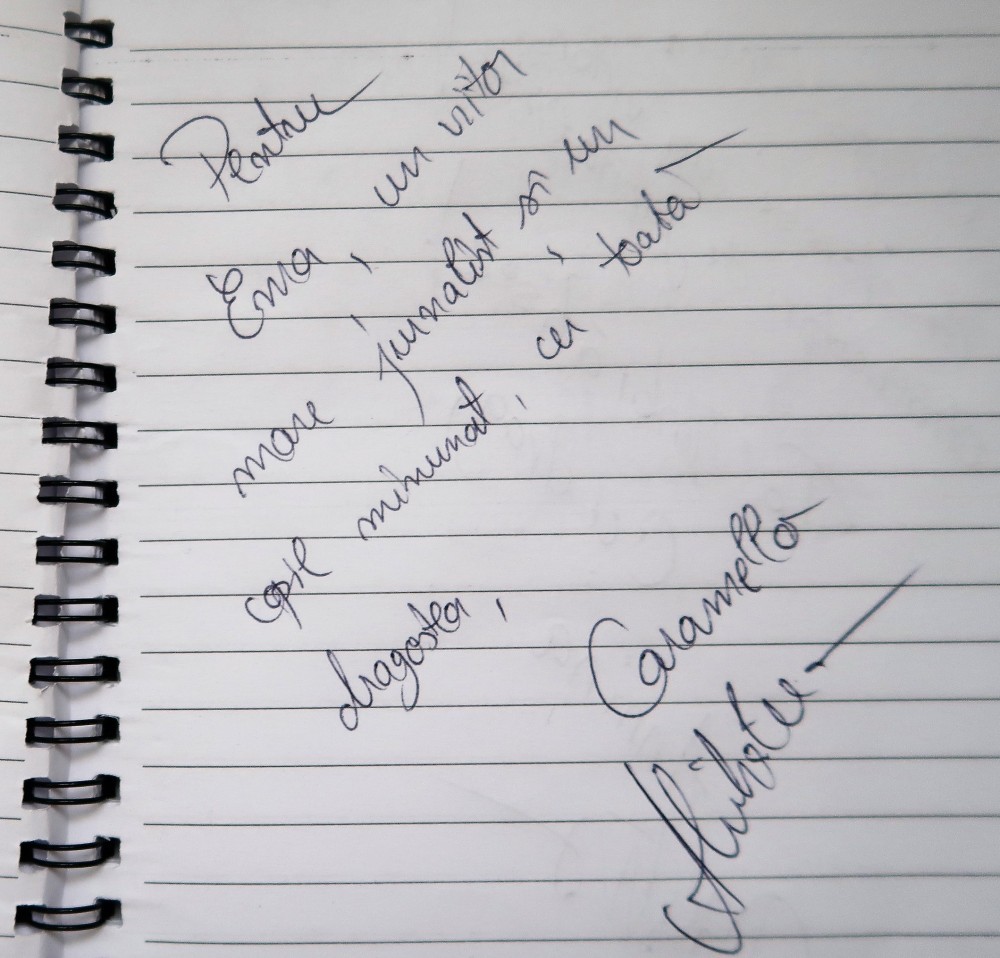 Pentru
Ema, un viitor
mare jurnalist și un
copil minunat, cu toată
dragostea,
Caramella